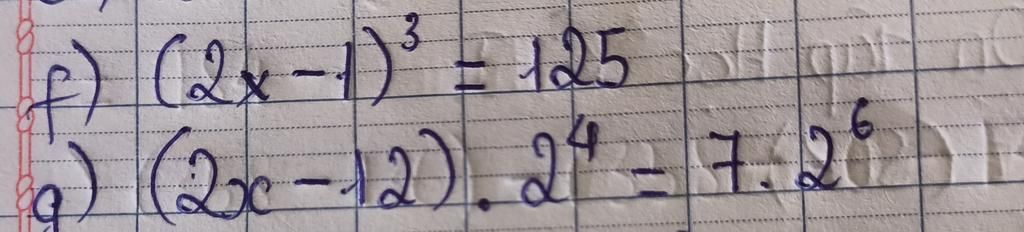 f) (2x - 1)³ = 125
g) (2x - 12) . 2⁴ = 7 . 2⁶